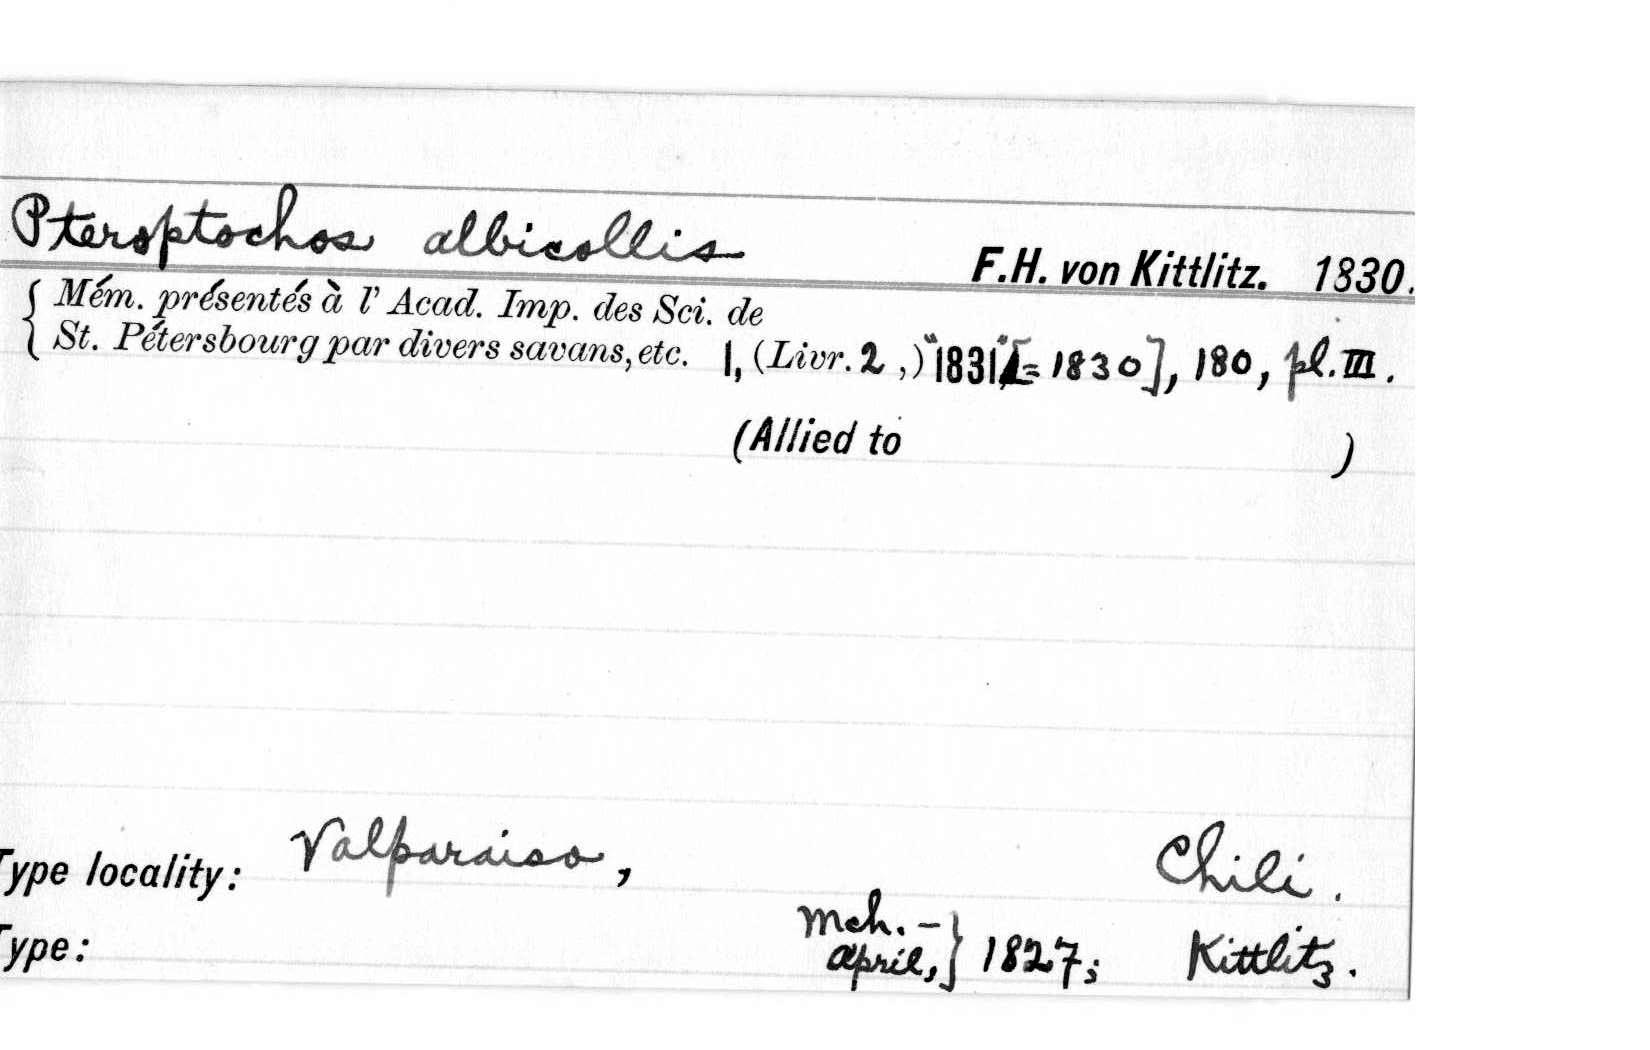 Pteroptochos albicollis F.H. von Kittlitz. 1830.
Mém. présentés à l' Acad. Imp. des Sci. de
St. Pétersbourg par divers savans, etc. 1, (Livr. 2 ,) "1831" [= 1830], 180, pl. III.
(Allied to )
Type locality: Valparaiso, Chili.
Mch. –
April, } 1827; Kittlitz.
Type: